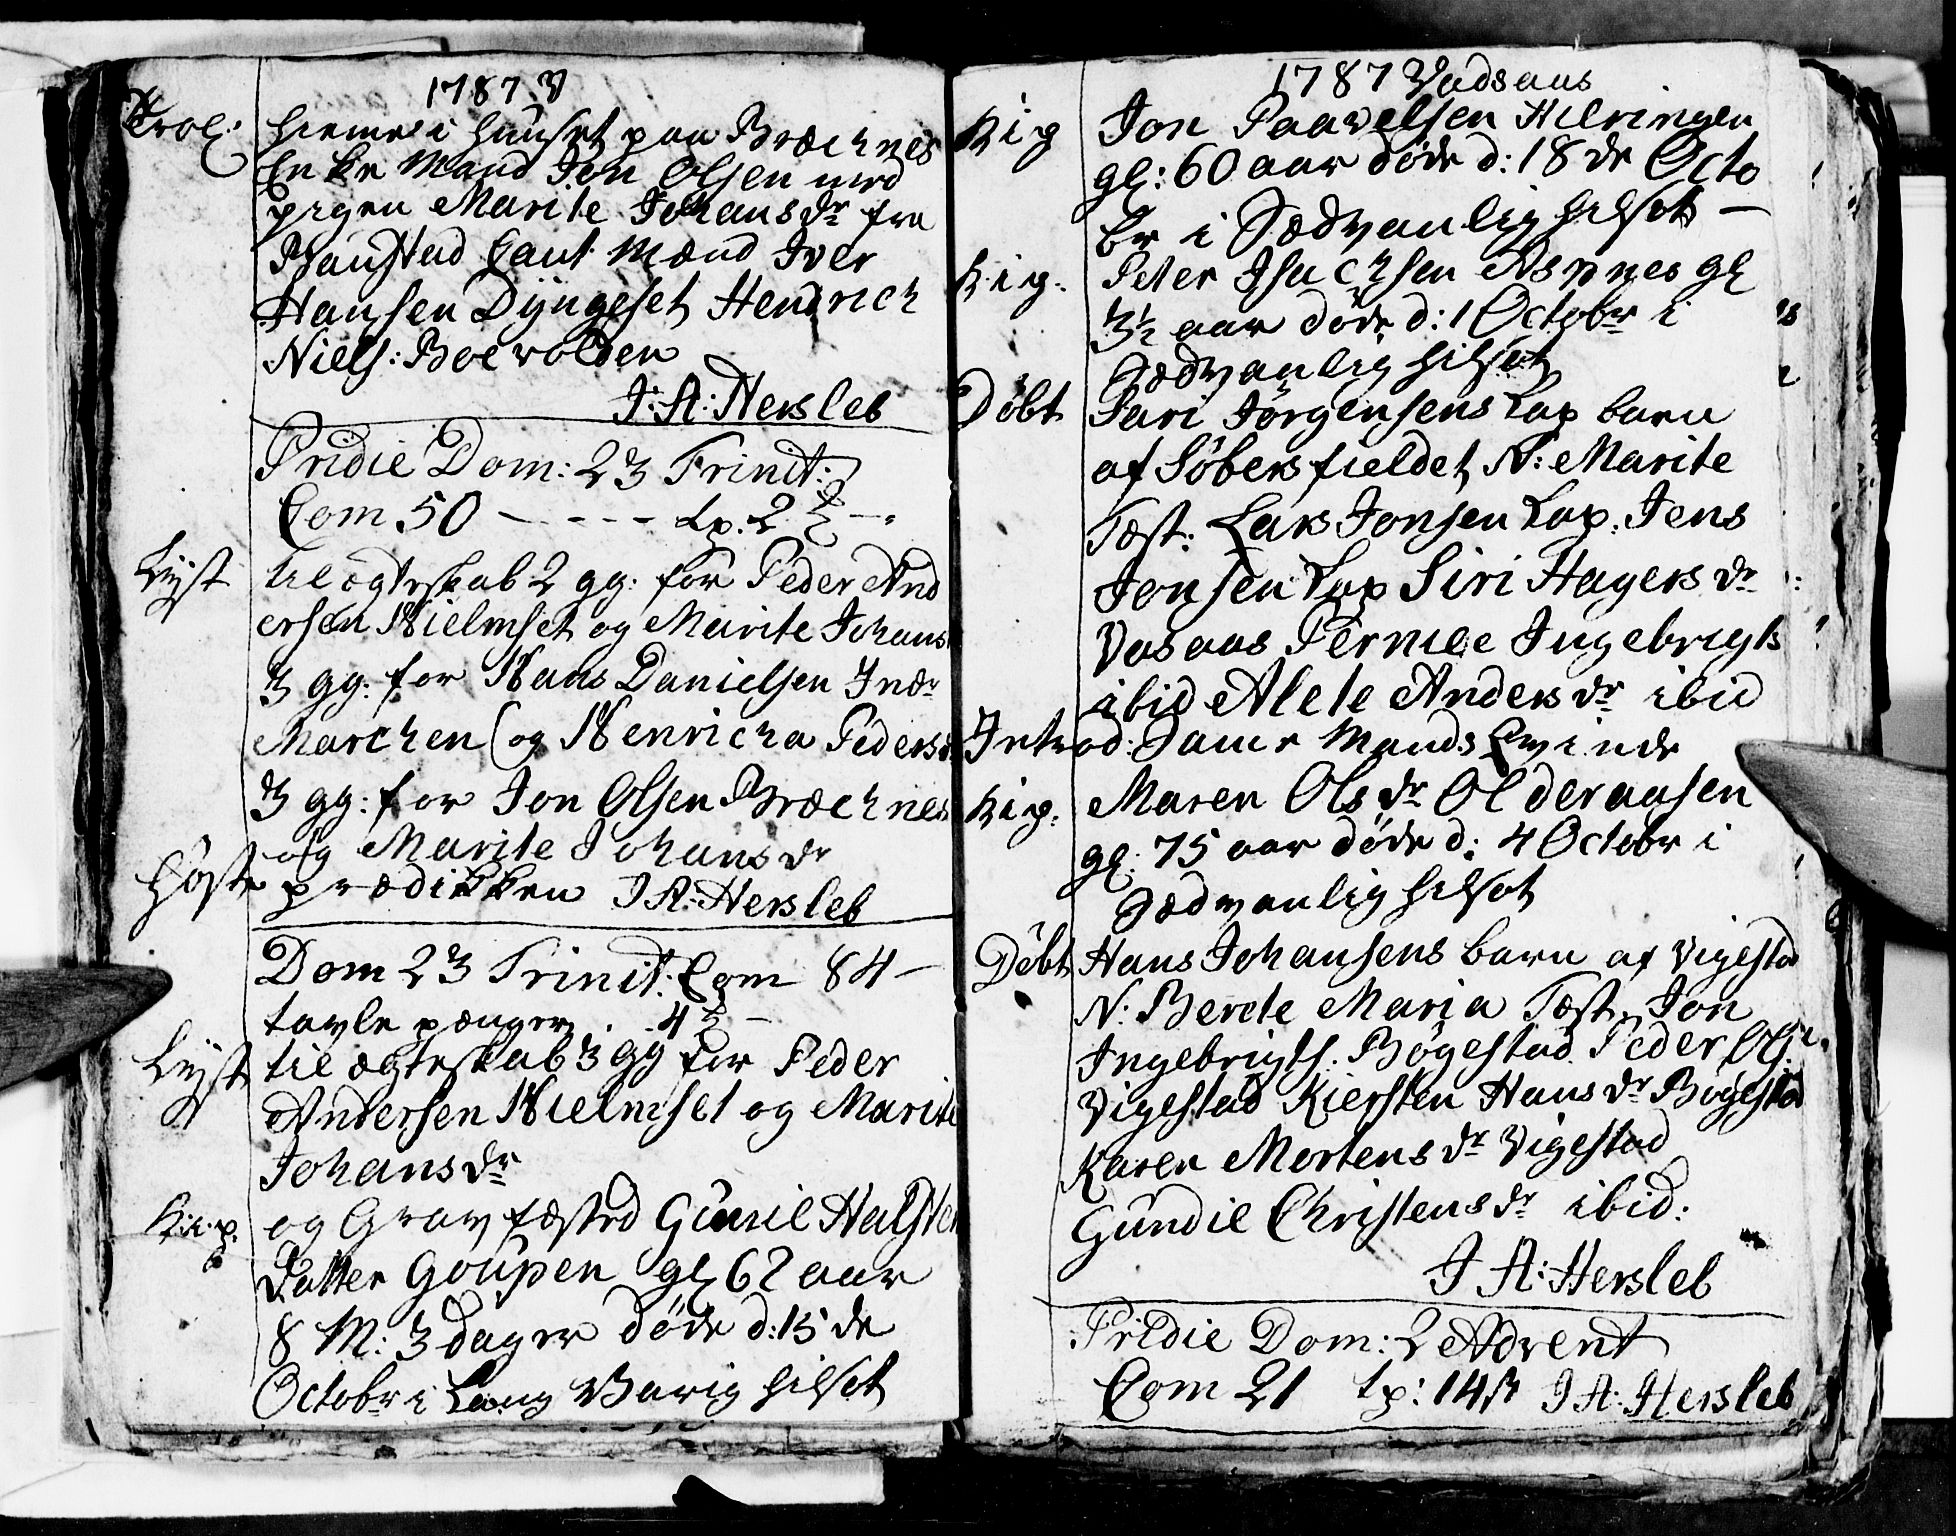 1787 V
Trol: hieme i Huuset paa Bræchnes
Enke Mand Jon Olsen med
pigen Marite Johansdr fra
Baustad Caut: Mænd Iver
Hansen Dÿngeset Hendrich
Niels: Boevolden
J: A: Hersleb
Pridie Dom: 23 Trinit:
Com 50 - - - - - tp. 2
Lÿst til ægteskab 2 gg: for Peder And
ersen Hielmset og Marite Johans
3 gg: for Hans Danielsen Indr
Marchen og Henricha Peders
3 gg: for Jon Olsen Bræchnes
og Marite Johansdr
Høste prædikken J A: Hersleb
Dom 23 Trinit: Com 84 -
tavle pænger . 4
Lÿst til ægteskab 3 gg for Peder
Andersen Hielmset og Marite
Johansdr
K: i: p. og Grav fæsted Gunil Halsten
Datter Goupen gl 62 aar
8 M: 3 dager døde d: 15 de
Octobr i Lang Varig hilset
1787 Vadsaas
k i p Jon Paavelsen Hilringen
gl: 60 aar døde d: 18 de Octo
br i Sædvanlig hilset -
k i p. Peter Isachsen Aspnes gl
3½ aar døde d: 1 Octobr i
Sædvanlig hilset
Døbt Fari Jörgensens Lap barn
af Søbersfieldet N: Marite
Tæst: Lars Jonsen Lap. Jens
Jonsen Lap Siri Hagers dr
Vasaas Pernile Ingebrigts
ibid Alete Anders dr ibid
Introd: Samme Mands Qvinde
k i p. Maren Ols dr Olderaasen
gl: 75 aar døde d: 4 Octobr i
Sædvanlig hilset
Døbt Hans Johansens barn af Vigestad
N: Berete Maria Tæst. Jon
Ingebrigts. Bøgestad Peder Ols:
Vigestad Kiersten Hans dr Bøgestad
Karen Mortens dr Vigestad
Gundil Christens dr ibid:
J A: Hersleb
Pridie Dom: 2 Advent
Com 21 tp: 14 β J A: Hersleb